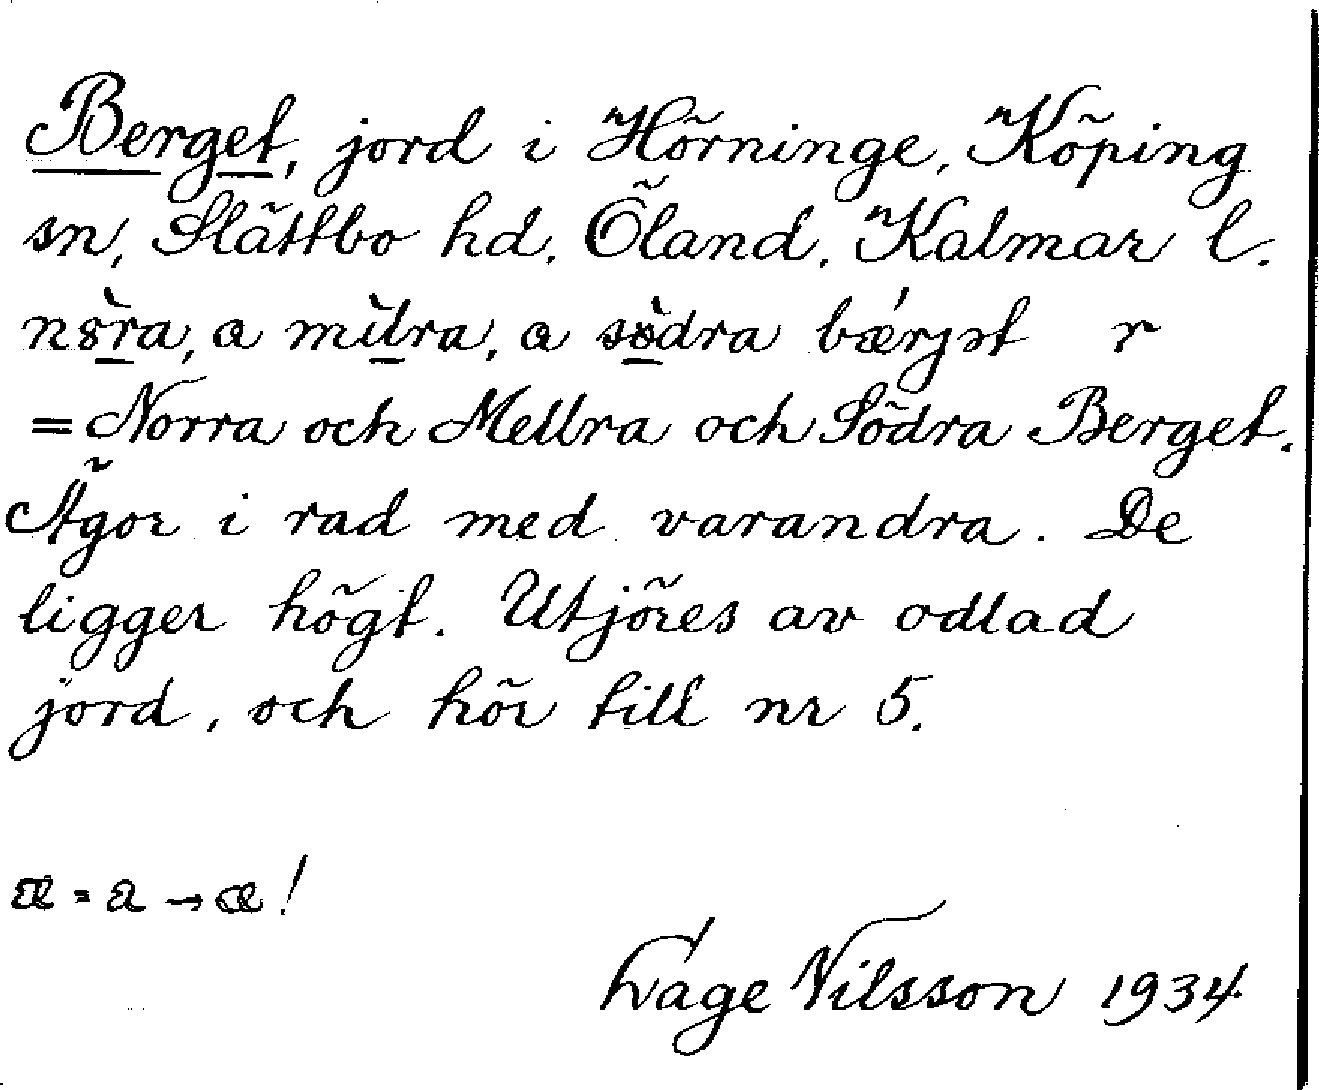 Berget, jord i Hörninge, Köping
sn, Slättbo hd. Öland. Kalmar l.
a a södra r
= Norra och Mellra och Södra Berget.
Ägor i rad med varandra. De
ligger högt. Utjöres av odlad
jord, och hör till nr 5.
æ = a → æ!
Åage Nilsson 1934